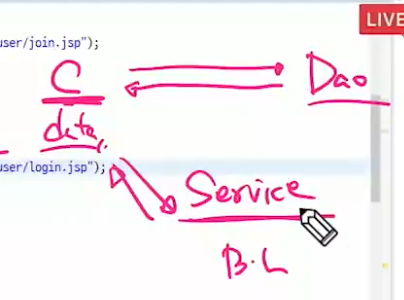 LIVE
user/join.jsp");
C
Dao
data,
user/login.jsp");
Service
B.L